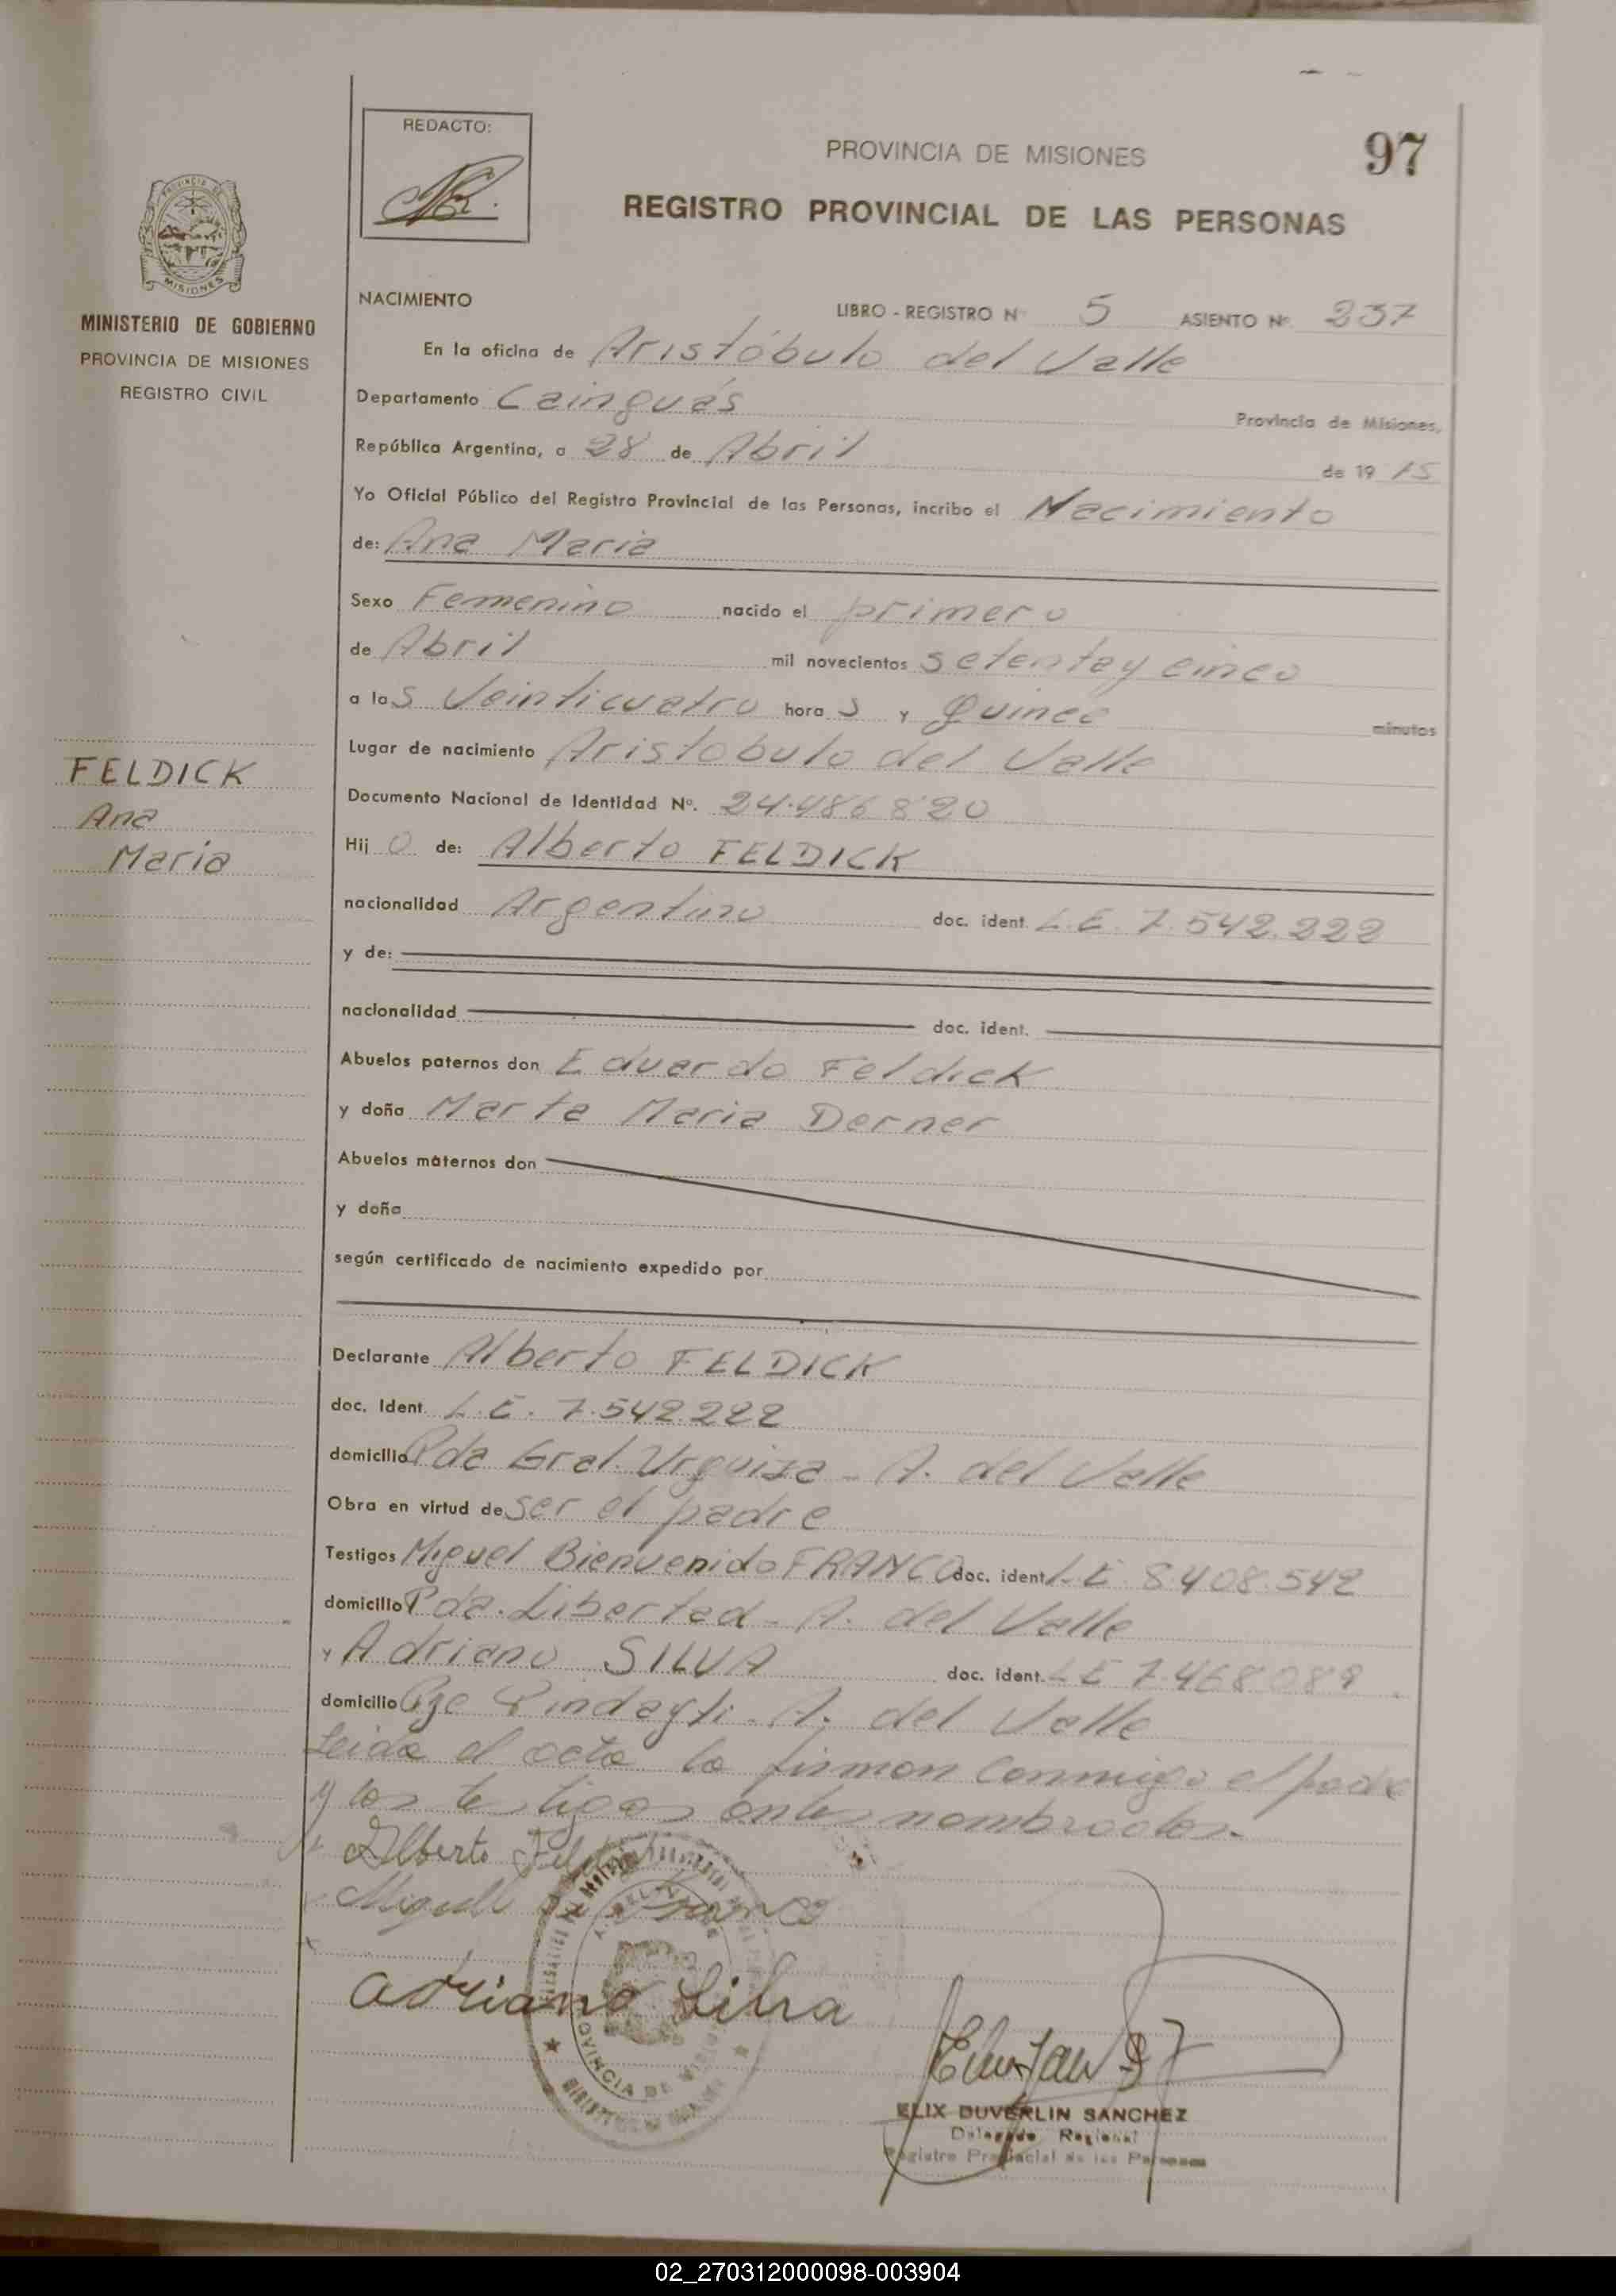 REDACTO:
PROVINCIA DE MISIONES
97
REGISTRO PROVINCIAL DE LAS PERSONAS
PROVINCIA DE
MISIONES
MINISTERIO DE GOBIERNO
PROVINCIA DE MISIONES
REGISTRO CIVIL
NACIMIENTO
LIBRO - REGISTRO Nº 5 ASIENTO Nº 237
En la oficina de Aristóbulo del Valle
Departamento Cainguás Provincia de Misiones,
República Argentina, a 28 de Abril de 19 75
Yo Oficial Público del Registro Provincial de las Personas, incribo el Nacimiento
de: Ana Maria
Sexo Femenino nacido el primero
de Abril mil novecientos setenta y cinco
a las Veinticuatro horas y Quince minutos
Lugar de nacimiento Aristobulo del Valle
Documento Nacional de Identidad Nº. 24.486820
Hijo de: Alberto FELDICK
nacionalidad Argentino doc. ident. L.E. 7.542.222
y de:
nacionalidad doc. ident.
Abuelos paternos don Eduardo Feldick
y doña Marta Maria Derner
Abuelos maternos don
y doña
según certificado de nacimiento expedido por
FELDICK
Ana
Maria
Declarante Alberto FELDICK
doc. Ident. L.E. 7.542.222
domicilio Pda Gral. Urquiza - A. del Valle
Obra en virtud de ser el padre
Testigos Miguel Bienvenido FRANCO doc. ident L.E. 8408.542
domicilio Pda. Libertad - A. del Valle
y Adriano SILVA doc. ident. L E 7.468089
domicilio Pje Pindayti - A. del Valle
Leida el acta la firman conmigo el padre
y los testigos antes nombrados.-
Alberto
Miguel B Franco
adriano Silva
PROVINCIA DE MISIONES
ELIX DUVERLIN SANCHEZ
Delegado Regional
Registro Provincial de las Personas
02_270312000098-003904